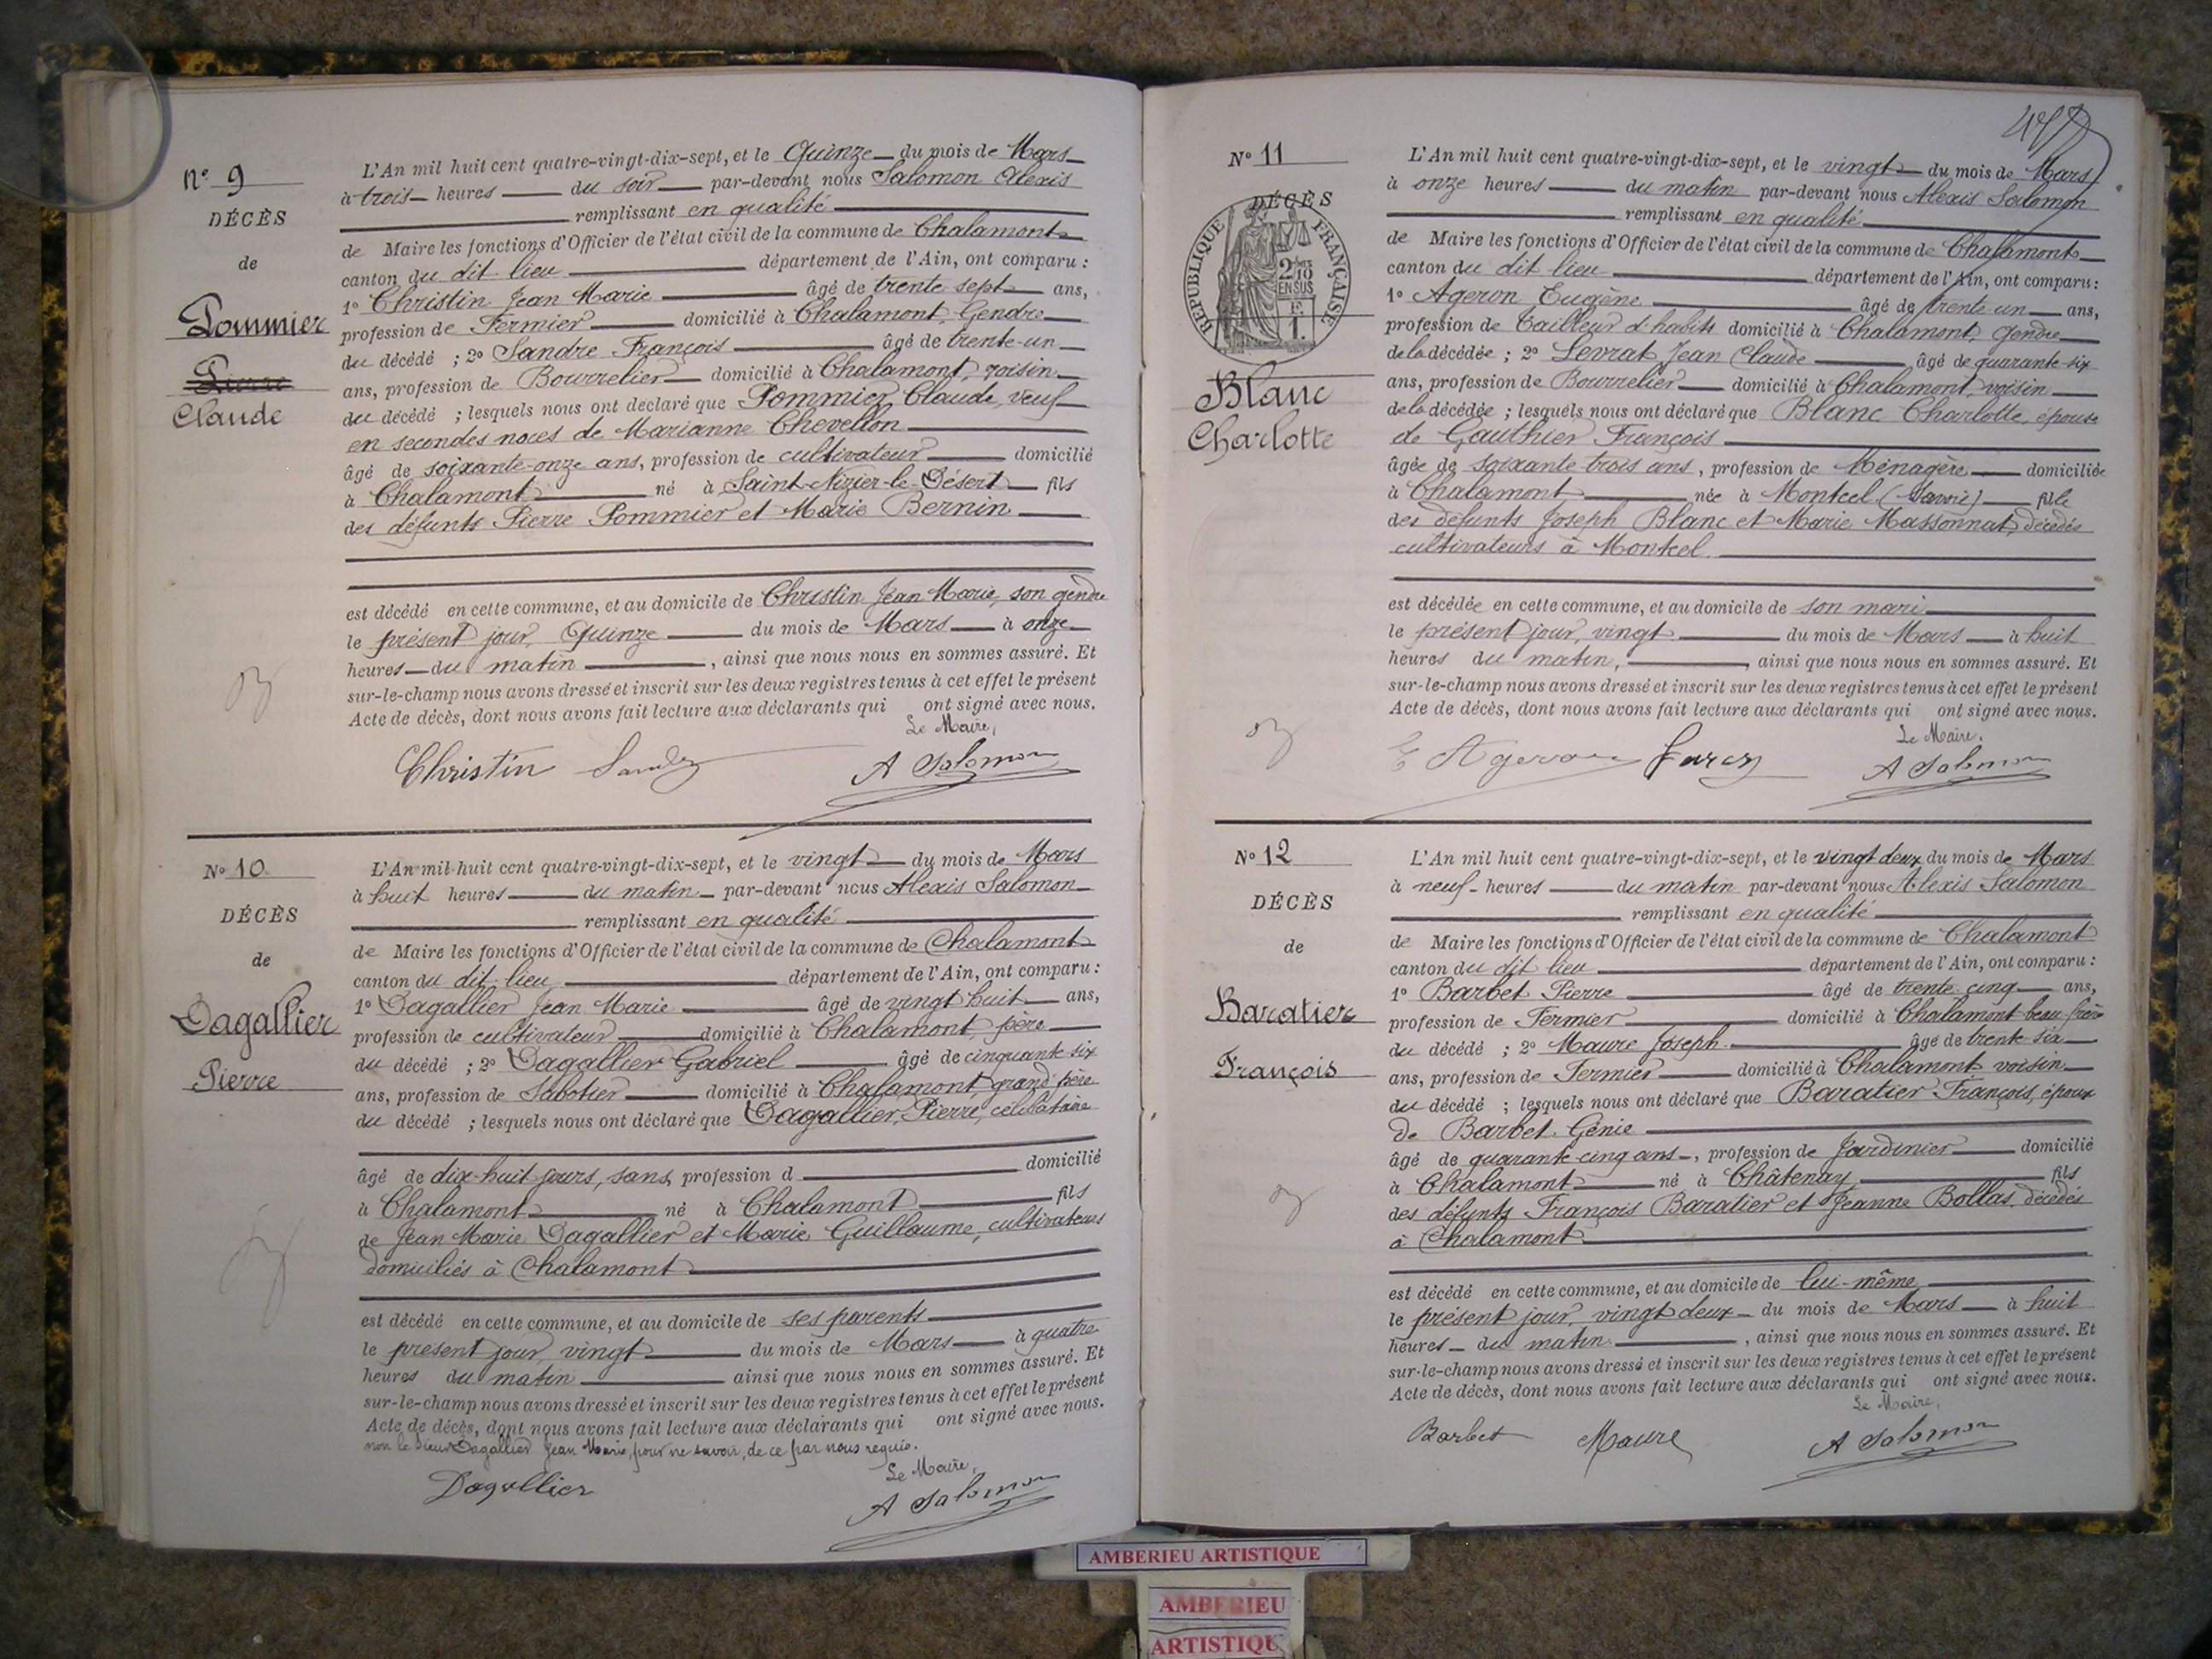 N° 9
DÉCÈS
de
Pommier
Pierre
Claude
L'An mil huit cent quatre-vingt-dix-sept, et le Quinze du mois de Mars
à trois heures du soir par-devant nous Salomon Alexis
remplissant en qualité
de Maire les fonctions d'Officier de l'état civil de la commune de Chalamont
canton du dit lieu département de l'Ain, ont comparu :
1° Christin Jean Marie âgé de trente sept ans,
profession de Fermier domicilié à Chalamont, Gendre
du décédé ; 2° Sandre François âgé de trente-un
ans, profession de Bourrelier domicilié à Chalamont, voisin
du décédé ; lesquels nous ont déclaré que Pommier Claude, veuf
en secondes noces de Marianne Chevellon
âgé de soixante-onze ans, profession de cultivateur domicilié
à Chalamont né à Saint-Nizier-le-Désert fils
des défunts Pierre Pommier et Marie Bernin
est décédé en cette commune, et au domicile de Christin Jean Marie, son gendre
le présent jour, Quinze du mois de Mars à onze
heures du matin , ainsi que nous nous en sommes assuré. Et
sur-le-champ nous avons dressé et inscrit sur les deux registres tenus à cet effet le présent
Acte de décès, dont nous avons fait lecture aux déclarants qui ont signé avec nous.
Le Maire,
Christin A Salomon
N° 10
DÉCÈS
de
Dagallier
Pierre
L'An mil huit cent quatre-vingt-dix-sept, et le vingt du mois de Mars
à huit heures du matin par-devant nous Alexis Salomon
remplissant en qualité
de Maire les fonctions d'Officier de l'état civil de la commune de Chalamont
canton du dit lieu département de l'Ain, ont comparu :
1° Dagallier Jean Marie âgé de vingt huit ans,
profession de cultivateur domicilié à Chalamont, père
du décédé ; 2° Dagallier Gabriel âgé de cinquante six
ans, profession de Sabotier domicilié à Chalamont, grand père
du décédé ; lesquels nous ont déclaré que Dagallier, Pierre, célibataire
âgé de dix-huit jours, sans profession d domicilié
à Chalamont né à Chalamont fils
de Jean Marie Dagallier et Marie Guillaume, cultivateurs
domiciliés à Chalamont
est décédé en cette commune, et au domicile de ses parents
le présent jour, vingt du mois de Mars à quatre
heures du matin ainsi que nous nous en sommes assuré. Et
sur-le-champ nous avons dressé et inscrit sur les deux registres tenus à cet effet le présent
Acte de décès, dont nous avons fait lecture aux déclarants qui ont signé avec nous.
non le Sieur Dagallier Jean Marie, pour ne savoir, de ce par nous requis.
Le Maire,
Dagallier A Salomon
N° 11
DÉCÈS
RÉPUBLIQUE FRANÇAISE
2/10 EN SUS
Blanc
Charlotte
L'An mil huit cent quatre-vingt-dix-sept, et le vingt du mois de Mars
à onze heures du matin par-devant nous Alexis Salomon
remplissant en qualité
de Maire les fonctions d'Officier de l'état civil de la commune de Chalamont
canton du dit lieu département de l'Ain, ont comparu :
1° Ageron Eugène âgé de trente-un ans,
profession de Tailleur d'habits domicilié à Chalamont, Gendre
de la décédée ; 2° Levrat Jean Claude âgé de quarante-six
ans, profession de Bourrelier domicilié à Chalamont, voisin
de la décédée ; lesquels nous ont déclaré que Blanc Charlotte, épouse
de Gauthier François
âgée de soixante trois ans, profession de Ménagère domiciliée
à Chalamont née à Montcel (Savoie) fille
des défunts Joseph Blanc et Marie Massonnat, décédés
cultivateurs à Montcel
est décédée en cette commune, et au domicile de son mari
le présent jour, vingt du mois de Mars à huit
heures du matin, , ainsi que nous nous en sommes assuré. Et
sur-le-champ nous avons dressé et inscrit sur les deux registres tenus à cet effet le présent
Acte de décès, dont nous avons fait lecture aux déclarants qui ont signé avec nous.
Le Maire.
E Ageron A Salomon
N° 12
DÉCÈS
de
Baratier
François
L'An mil huit cent quatre-vingt-dix-sept, et le vingt deux du mois de Mars
à neuf heures du matin par-devant nous Alexis Salomon
remplissant en qualité
de Maire les fonctions d'Officier de l'état civil de la commune de Chalamont
canton du dit lieu département de l'Ain, ont comparu :
1° Barbet Pierre âgé de trente cinq ans,
profession de Fermier domicilié à Chalamont beau-frère
du décédé ; 2° Maure Joseph âgé de trente six
ans, profession de Fermier domicilié à Chalamont voisin
du décédé ; lesquels nous ont déclaré que Baratier François, époux
de Barbet Génie
âgé de quarante cinq ans, profession de Jardinier domicilié
à Chalamont né à Châtenay fils
des défunts François Baratier et Jeanne Bollas, décédés
à Chalamont
est décédé en cette commune, et au domicile de lui-même
le présent jour, vingt deux du mois de Mars à huit
heures du matin , ainsi que nous nous en sommes assuré. Et
sur-le-champ nous avons dressé et inscrit sur les deux registres tenus à cet effet le présent
Acte de décès, dont nous avons fait lecture aux déclarants qui ont signé avec nous.
Le Maire,
Barbet Maure A Salomon
AMBERIEU ARTISTIQUE
AMBERIEU
ARTISTIQU